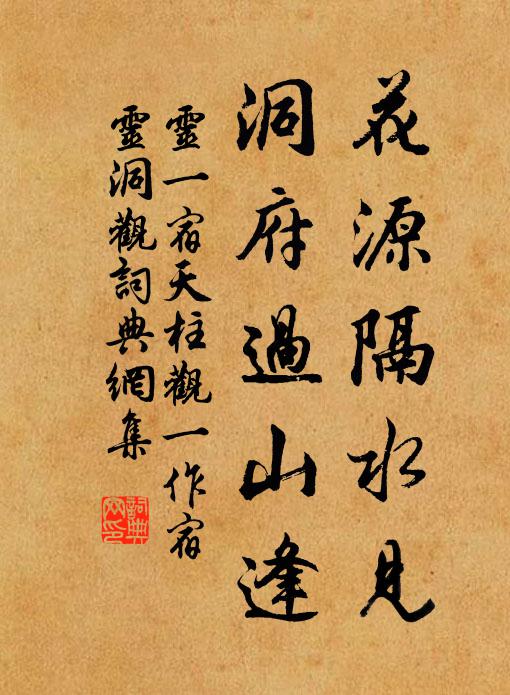 花源隔水見
洞府過山逢
靈一宿天柱觀一作宿
靈洞觀詞典網集
詞典
网印